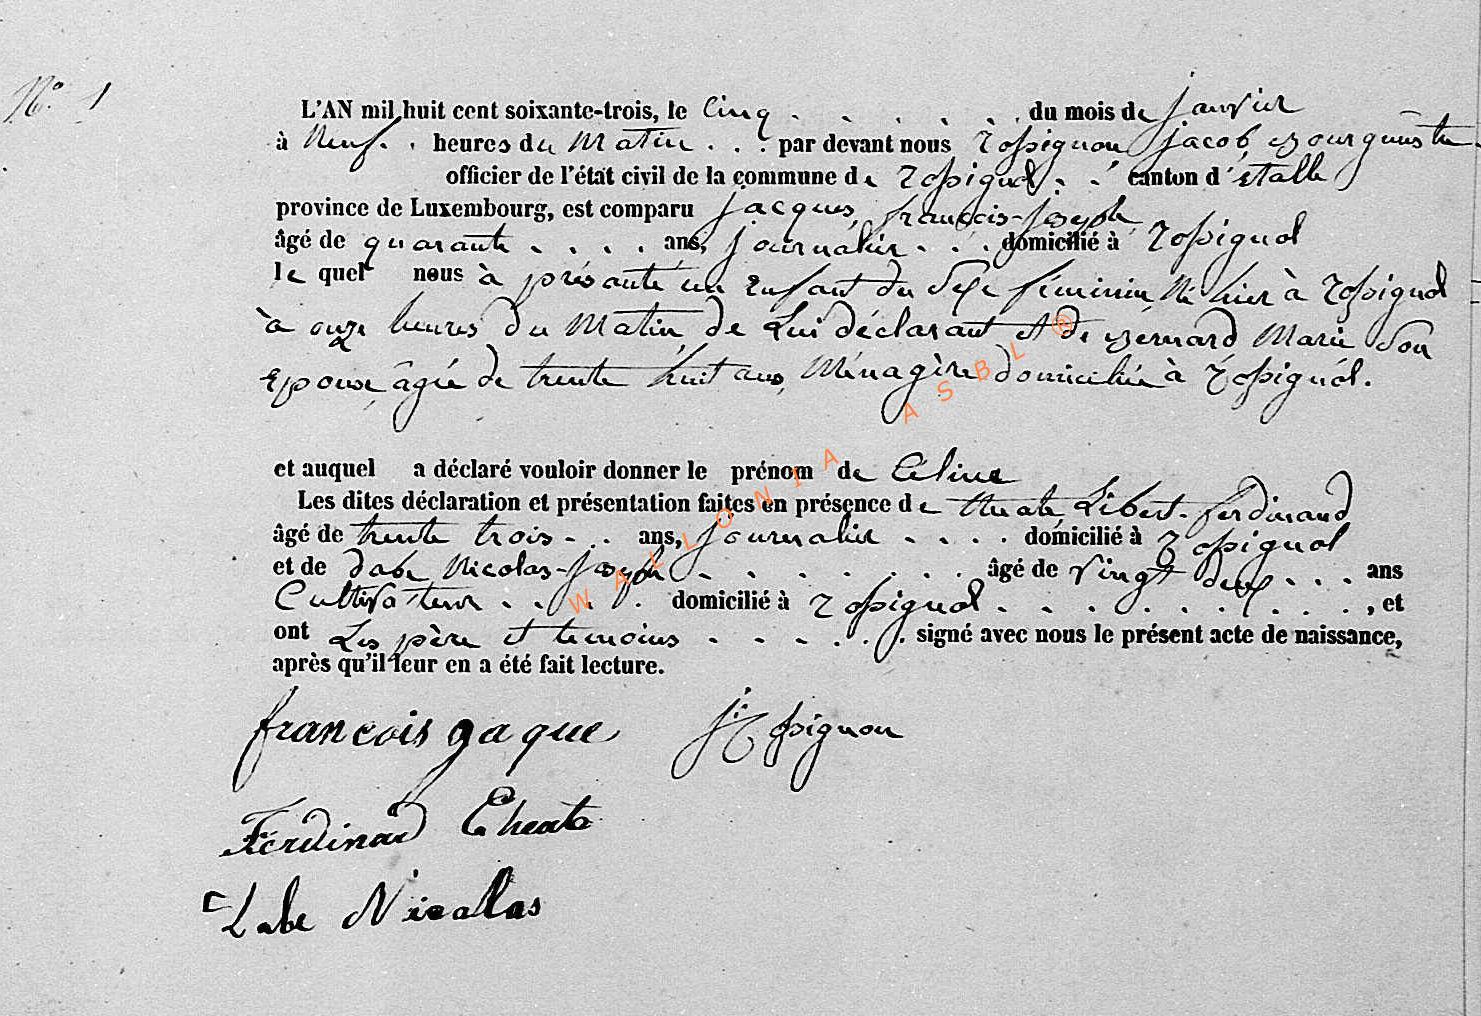 N.° 1
L'AN mil huit cent soixante-trois, le Cinq . . . . . . du mois de janvier
à Neuf . heures du Matin . . . par devant nous Rossignon jacob Bourgumestre
officier de l'état civil de la commune de Rossignol . . canton d'étalle
province de Luxembourg, est comparu jacques, françois-joseph
âgé de quarante . . . . ans, journalier . . . domicilié à Rossignol
le quel nous à présanté un Enfant du Sexe féminin Né hier à Rossignol
à onze heures du Matin de Lui déclarant et de Bernard Marie Son
Epouse, âgée de trente huit ans, Ménagère domiciliée à Rossignol.
et auquel a déclaré vouloir donner le prénom de Céline
Les dites déclaration et présentation faites en présence de Libert-ferdinand
âgé de trente trois - . . ans, journalier . . . . domicilié à Rossignol
et de Nicolas-joseph . . . . . . . . âgé de vingt deux . . . ans
Cultivateur . . . . . domicilié à Rossignol . . . . . . . . . . , et
ont Les père et temoins . . . . . . signé avec nous le présent acte de naissance,
après qu'il leur en a été fait lecture.
francois jaque j: Rossignon
Ferdinard
Labe Nicolas
WALLONIA ASBL ®